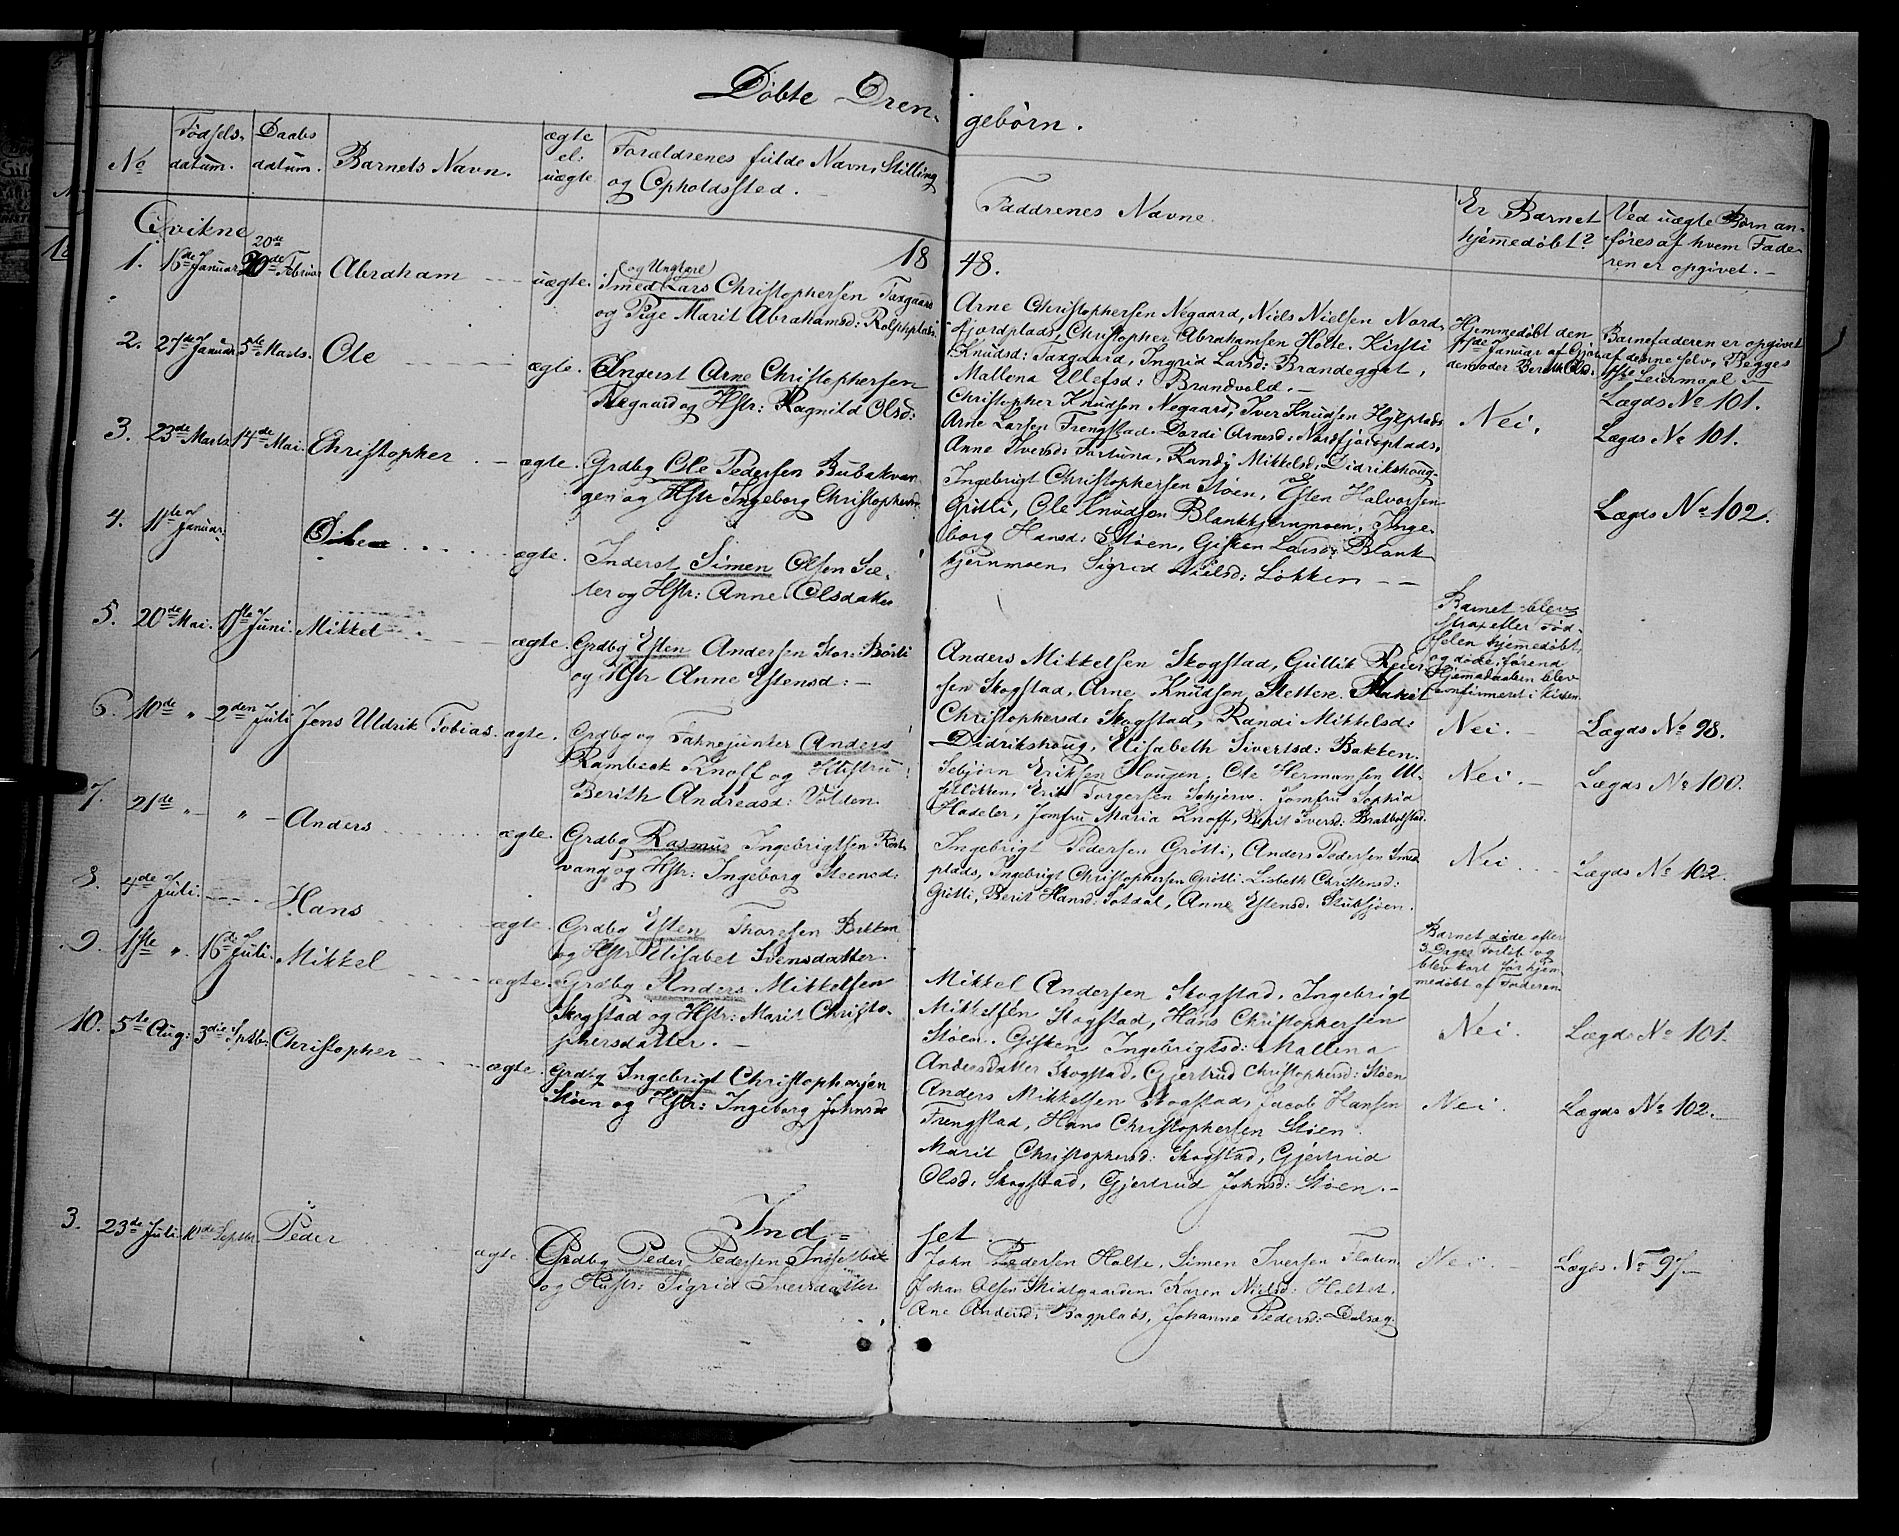 Døbte Dren-
gebørn.
No
Fødsels-
datum.
Daabs
datum.
Barnets Navn.
ægte
el.
uægte
Forældrenes fulde Navn, Stilling
og Opholdssted.
Faddrenes Navne.
Er Barnet
hjemmedøbt?
Ved uægte Børn an-
føres af hvem Fade-
ren er opgivet.
Qvikne
1848.
1. 16de Januar 20de Februar Abraham uægte.
(og Ungkarl)
Smed Lars Christophersen Taxgaard
og Pige Marit Abrahamsd: Rolphplads.
Arne Christophersen Negaard, Niels Nielsen Nord-
fjordplads, Christopher Abrahamsen Holte, Kirsti
Knudsd: Taxgaard, Ingrid Larsd: Brandegget,
Mallena Ulefsd: Brandvold.
Hjemmedøbt den
Januar af Gjor-
demoder Berith Olsd:
Barnefaderen er opgivet
af denne selv, Begges
1ste Leiermaal
Lægds No 101.
2. 27de Januar 5te Marts. Ole ægte.
Inderst Arne Christophersen
Negaard og Hstr: Ragnild Olsd:
Christopher Knudsen Negaard, Iver Knudsen Hylplads
Arne Larsen Frengstad. Dordi Arnesd: Nordfjordplads,
Anne Iversd: Fortuna, Randi Mikkelsd: Didrikshoug.
Nei.
Lægds No 101.
3. 23de Marts 14de Mai. Christopher ægte.
Grdbg Ole Pedersen Bubakvan-
gen og Hstr Ingeborg Christophersd:
Ingebrigt Christophersen Støen, Esten Halvorsen
Grøtli, Ole Knudsen Blankkjernmoen, Inge-
borg Hansd: Støen, Gisken Larsd: Blank-
kjernmoen, Sigrid Nielsd: Løkken
Lægds No 102.
4. 11te Januar. ægte.
Inderst Simen Olsen Sæ-
ter og Hstr: Anne Olsdatter
Barnet blev
strax efter Fød-
selen hjemmedøbt,
og døde, førend
Hjemmdaaben blev
confirmeret i Kirken
5. 20de Mai. 1ste Juni. Mikkel ægte.
Grdbg Esten Andersen Stor-Børli
og Hstr Anne Estensd:
Anders Mikkelsen Skogstad, Gullik Reier-
sen Skogstad, Arne Knudsen Stetten. Marit
Christophersd: Skogstad, Randi Mikkelsd:
Didrikshoug, Elisabeth Sivertsd: Bakken.
Nei.
Lægds No 98.
6. 10de " 2den Juli Jens Uldrik Tobias. ægte.
Grdbg og Fahnejunker Anders
Rambeck Knoff og Hustru
Berith Andreasd: Volden.
Sebjørn Eriksen Hougen, Ole Hermansen Ul-
setløkken, Erik Torgersen Schjerve. Jomfru Sophia
Hadeler, Jomfru Maria Knoff, Berit Iversd: Bratbolstad.
Nei.
Lægds No 100.
7. 21de " " Anders ægte.
Grdbg Rasmus Ingebrigtsen Kort-
vang og Hstr: Ingeborg Steensd:
Ingebrigt Pedersen Grøtli, Anders Pedersen Smed-
plads, Ingebrigt Christophersen Grøtli. Lisbeth Christensd:
Grøtli, Berit Hansd: Fotdal, Anne Estensd: Stubsjøen.
Nei
Lægds No 102.
8. 4de Juli. Hans ægte.
Grdbg Esten Thoresen Bekken
og Hstr Elisabet Svensdatter.
Barnet døde efter
3 Dages Forløb og
blev kort før hjem-
medøbt af Faderen.
9. 1ste " 16de Juli. Mikkel ægte.
Grdbg Anders Mikkelsen
Skogstad og Hstr: Marit Christo-
phersdatter.
Mikkel Andersen Skogstad, Ingebrigt
Mikkelsen Skogstad, Hans Christophersen
Støen. Gisken Ingebrigtsd: Mallena
Andersdatter Skogstad, Gjertrud Christophersd: Støen
Nei.
Lægds No 101.
10. 5te Aug: 3die Sptbr. Christopher ægte.
Grdbg Ingebrigt Christophersen
Støen og Hstr: Ingeborg Johnsd:
Anders Mikkelsen Skogstad, Jacob Hansen
Frengstad, Hans Christophersen Støen.
Marit Christophersd: Skogstad, Gjertrud
Olsd: Skogstad, Gjertrud Johnsd: Støen.
Nei.
Lægds No 102.
Ind-
set.
3. 23de Juli. 10de Septbr. Peder ægte
Grdbg Peder Pedersen Indsetbak
og Hustr: Sigrid Iversdatter
John Pedersen Holte, Simen Iversen Floten
Johan Olsen Midtgaarden. Karen Nielsd: Holtet.
Ane Andersd: Bagplads, Johanne Pedersd: Dalsæg.
Nei.
Lægds No 97.